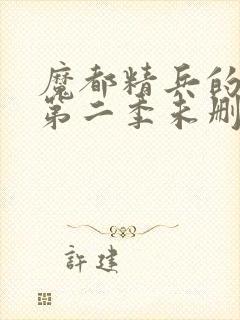 魔都精兵的
第二季未删
許建